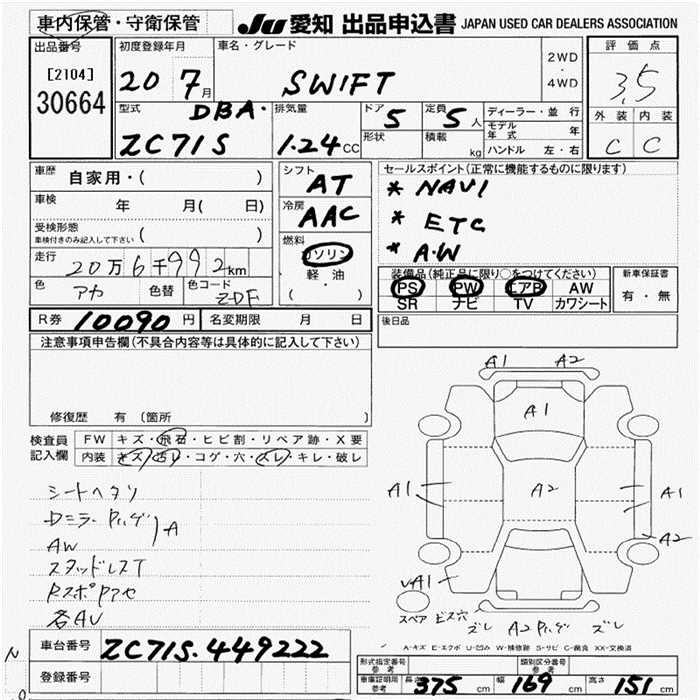 車内保管・守衛保管
JU 愛知 出品申込書 JAPAN USED CAR DEALERS ASSOCIATION
出品番号
[2104]
30664
初度登録年月
20 7月
車名・グレード
SWIFT
2WD
・
4WD
評価点
3.5
外装 内装
C C
型式
DBA・
ZC71S
排気量
1.24cc
ドア
5
形状
定員
5人
積載
kg
ディーラー・並行
モデル年式 年
ハンドル 左・右
車歴
自家用・( )
車検 年 月( 日)
受検形態
車検付きのみ記入して下さい ( )
走行
20万6千992km
色 アカ 色替 色コード ZDF
シフト
AT
冷房
AAC
燃料
ガソリン
軽油
( )
セールスポイント(正常に機能するものに限ります)
* NAVI
* ETC
* A・W
装備品(純正品に限り○をつけてください)
PS PW エアB AW
SR ナビ TV カワシート
新車保証書
有・無
後日品
R券 10090円 名変期限 月 日
注意事項申告欄(不具合内容等は具体的に記入して下さい)
修復歴 有 (箇所 )
検査員記入欄
FW キズ・飛石・ヒビ割・リペア跡・X要
内装 キズ・汚レ・コゲ・穴・スレ・キレ・破レ
シートヘタリ
AW
スタッドレスT
各AU
A
A1 A2
A1
A1 A2 A1
A2
A1
スペア ビス穴
ズレ A2 ズレ
A-キズ E-エクボ U-凹み W-補修跡 S-サビ C-腐食 XX-交換済
車台番号 ZC71S-449222
登録番号
N
0
形式指定番号
参考
類別区分番号
参考
車庫証明用
参考
長さ 375 cm 幅 169 cm 高さ 151 cm